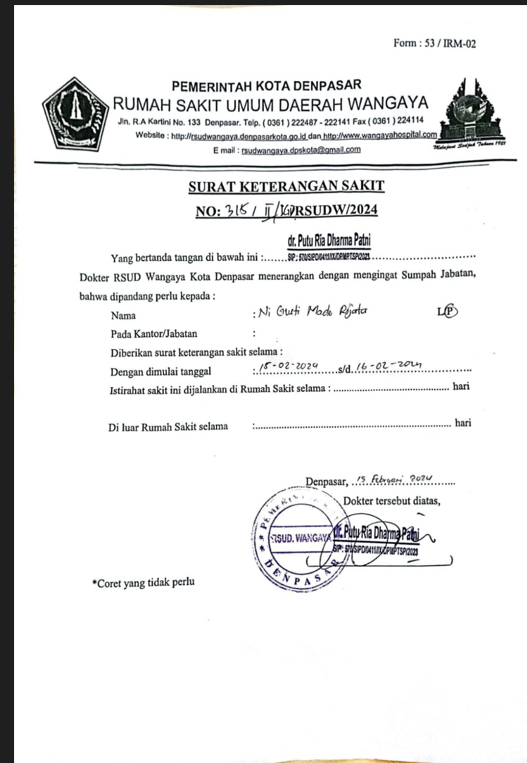 Form : 53 / IRM-02
PEMERINTAH KOTA DENPASAR
RUMAH SAKIT UMUM DAERAH WANGAYA
Jln. R.A Kartini No. 133 Denpasar. Telp. ( 0361 ) 222487 - 222141 Fax ( 0361 ) 224114
Website : http://rsudwangaya.denpasarkota.go.id dan http://www.wangayahospital.com
E mail : rsudwangaya.dpskota@gmail.com
Melajani Sedjak Tahoen 1921
SURAT KETERANGAN SAKIT
NO: 315 / II / RSUDW/2024
dr. Putu Ria Dharma Patni
Yang bertanda tangan di bawah ini :
Dokter RSUD Wangaya Kota Denpasar menerangkan dengan mengingat Sumpah Jabatan,
bahwa dipandang perlu kepada :
Nama : Ni Gusti Made L/P
Pada Kantor/Jabatan :
Diberikan surat keterangan sakit selama :
Dengan dimulai tanggal : 15-02-2024 s/d 16-02-2024
Istirahat sakit ini dijalankan di Rumah Sakit selama : hari
Di luar Rumah Sakit selama : hari
Denpasar, 15 Februari 2024
Dokter tersebut diatas,
RSUD. WANGAYA
DENPASAR
dr. Putu Ria Dharma Patni
*Coret yang tidak perlu